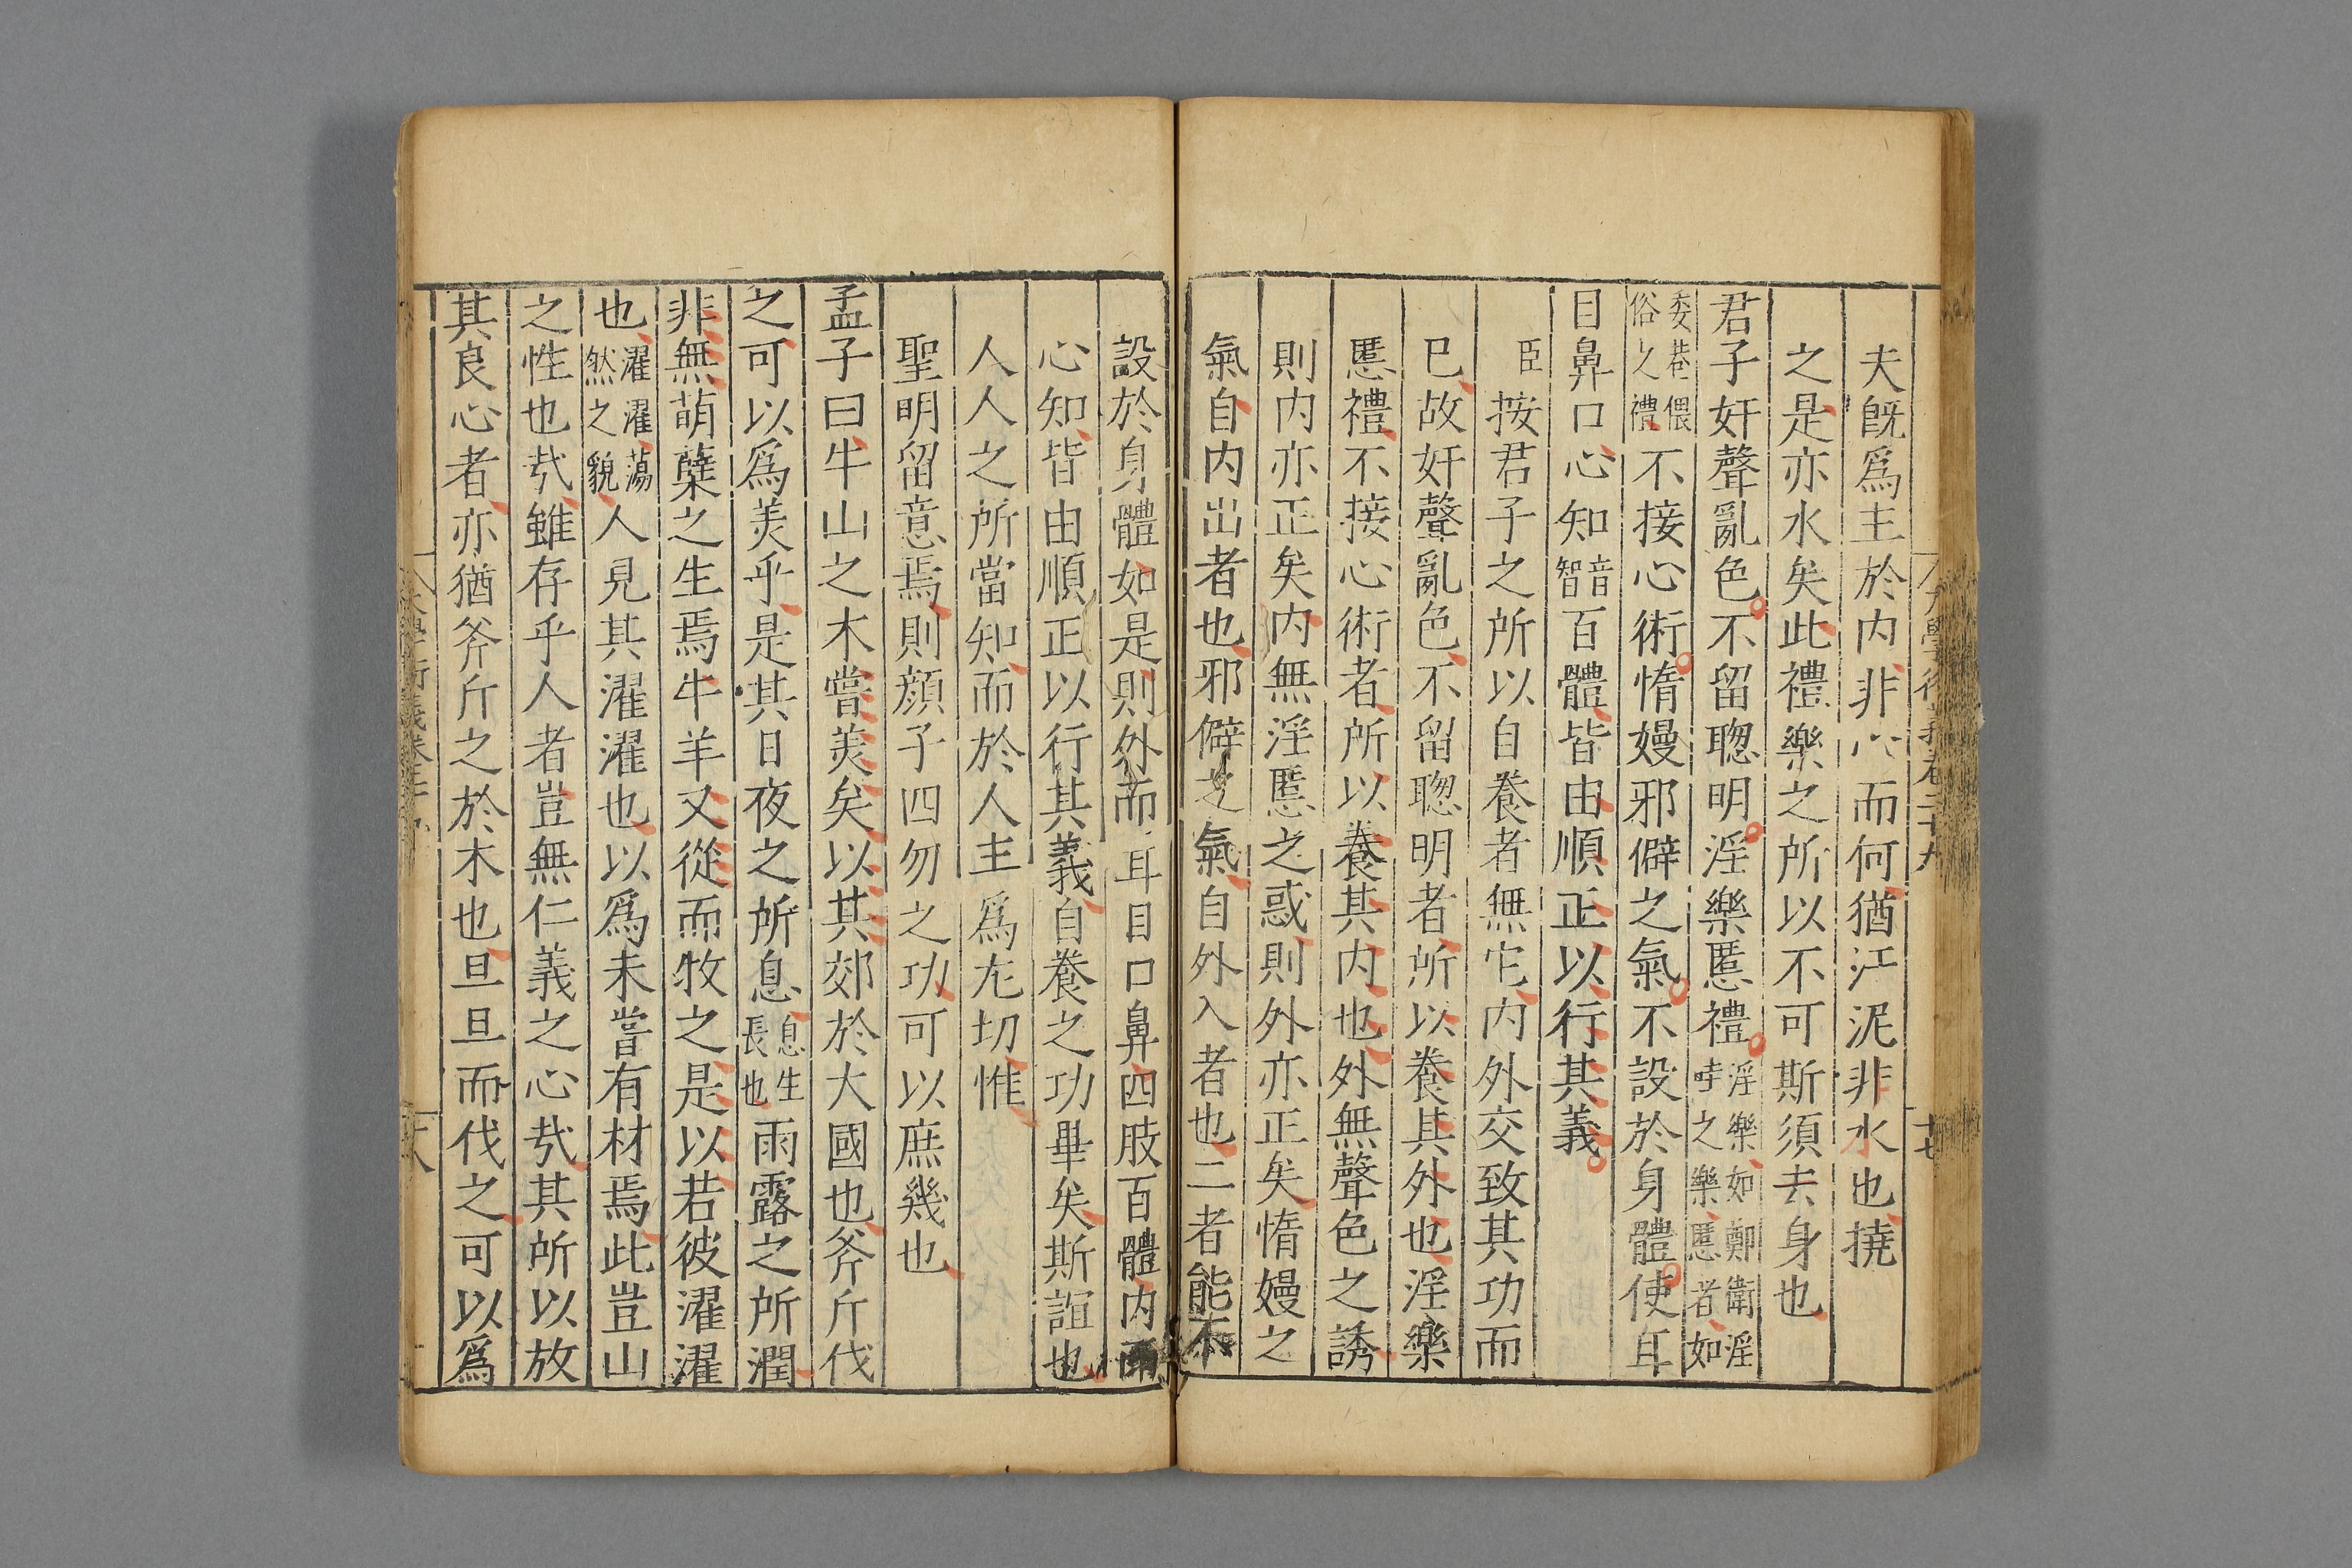 夫旣爲主於内非心而何猶江泥非水也撓
之是亦水矣此禮樂之所以不可斯須去身也
君子奸聲亂色不留聰明淫樂慝禮淫樂如鄭衛淫哇之樂慝者如
委巷偎俗之禮不接心術惰嫚邪僻之氣不設於身體使耳
目鼻口心知音智百體皆由順正以行其義
臣按君子之所以自養者無它内外交致其功而
已故奸聲亂色不留聰明者所以養其外也淫樂
慝禮不接心術者所以養其内也外無聲色之誘
則内亦正矣内無淫慝之惑則外亦正矣惰嫚之
氣自内出者也邪僻之氣自外入者也二者能不
設於身體如是則外而耳目口鼻四肢百體内而
心知皆由順正以行其義自養之功畢矣斯誼也
人人之所當知而於人主爲尤切惟
聖明留意焉則顔子四勿之功可以庶幾也
孟子曰牛山之木嘗美矣以其郊於大國也斧斤伐
之可以爲美乎是其日夜之所息息生長也雨露之所潤
非無萌蘖之生焉牛羊又從而牧之是以若彼濯濯
也濯濯蕩然之貌人見其濯濯也以爲未嘗有材焉此豈山
之性也㢤雖存乎人者豈無仁義之心㢤其所以放
其良心者亦猶斧斤之於木也旦旦而伐之可以爲